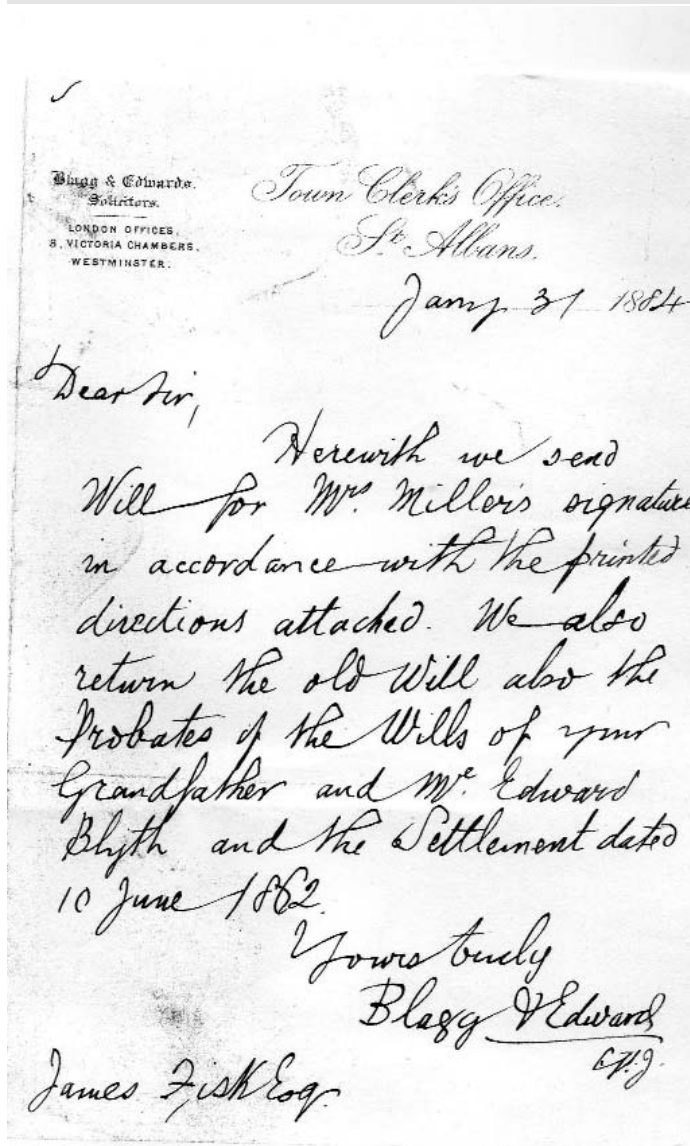 Blagg & Edwards.
Solicitors.
LONDON OFFICES,
8, VICTORIA CHAMBERS,
WESTMINSTER.
Town Clerk's Office.
St. Albans.
Jany 31 1884
Dear Sir,
Herewith we send
Will for Mrs. Miller's signature
in accordance with the printed
directions attached. We also
return the old Will also the
Probates of the Wills of your
Grandfather and Mr. Edward
Blyth and the Settlement dated
10 June 1862.
Yours truly
Blagg & Edwards
James Fisk Esq.